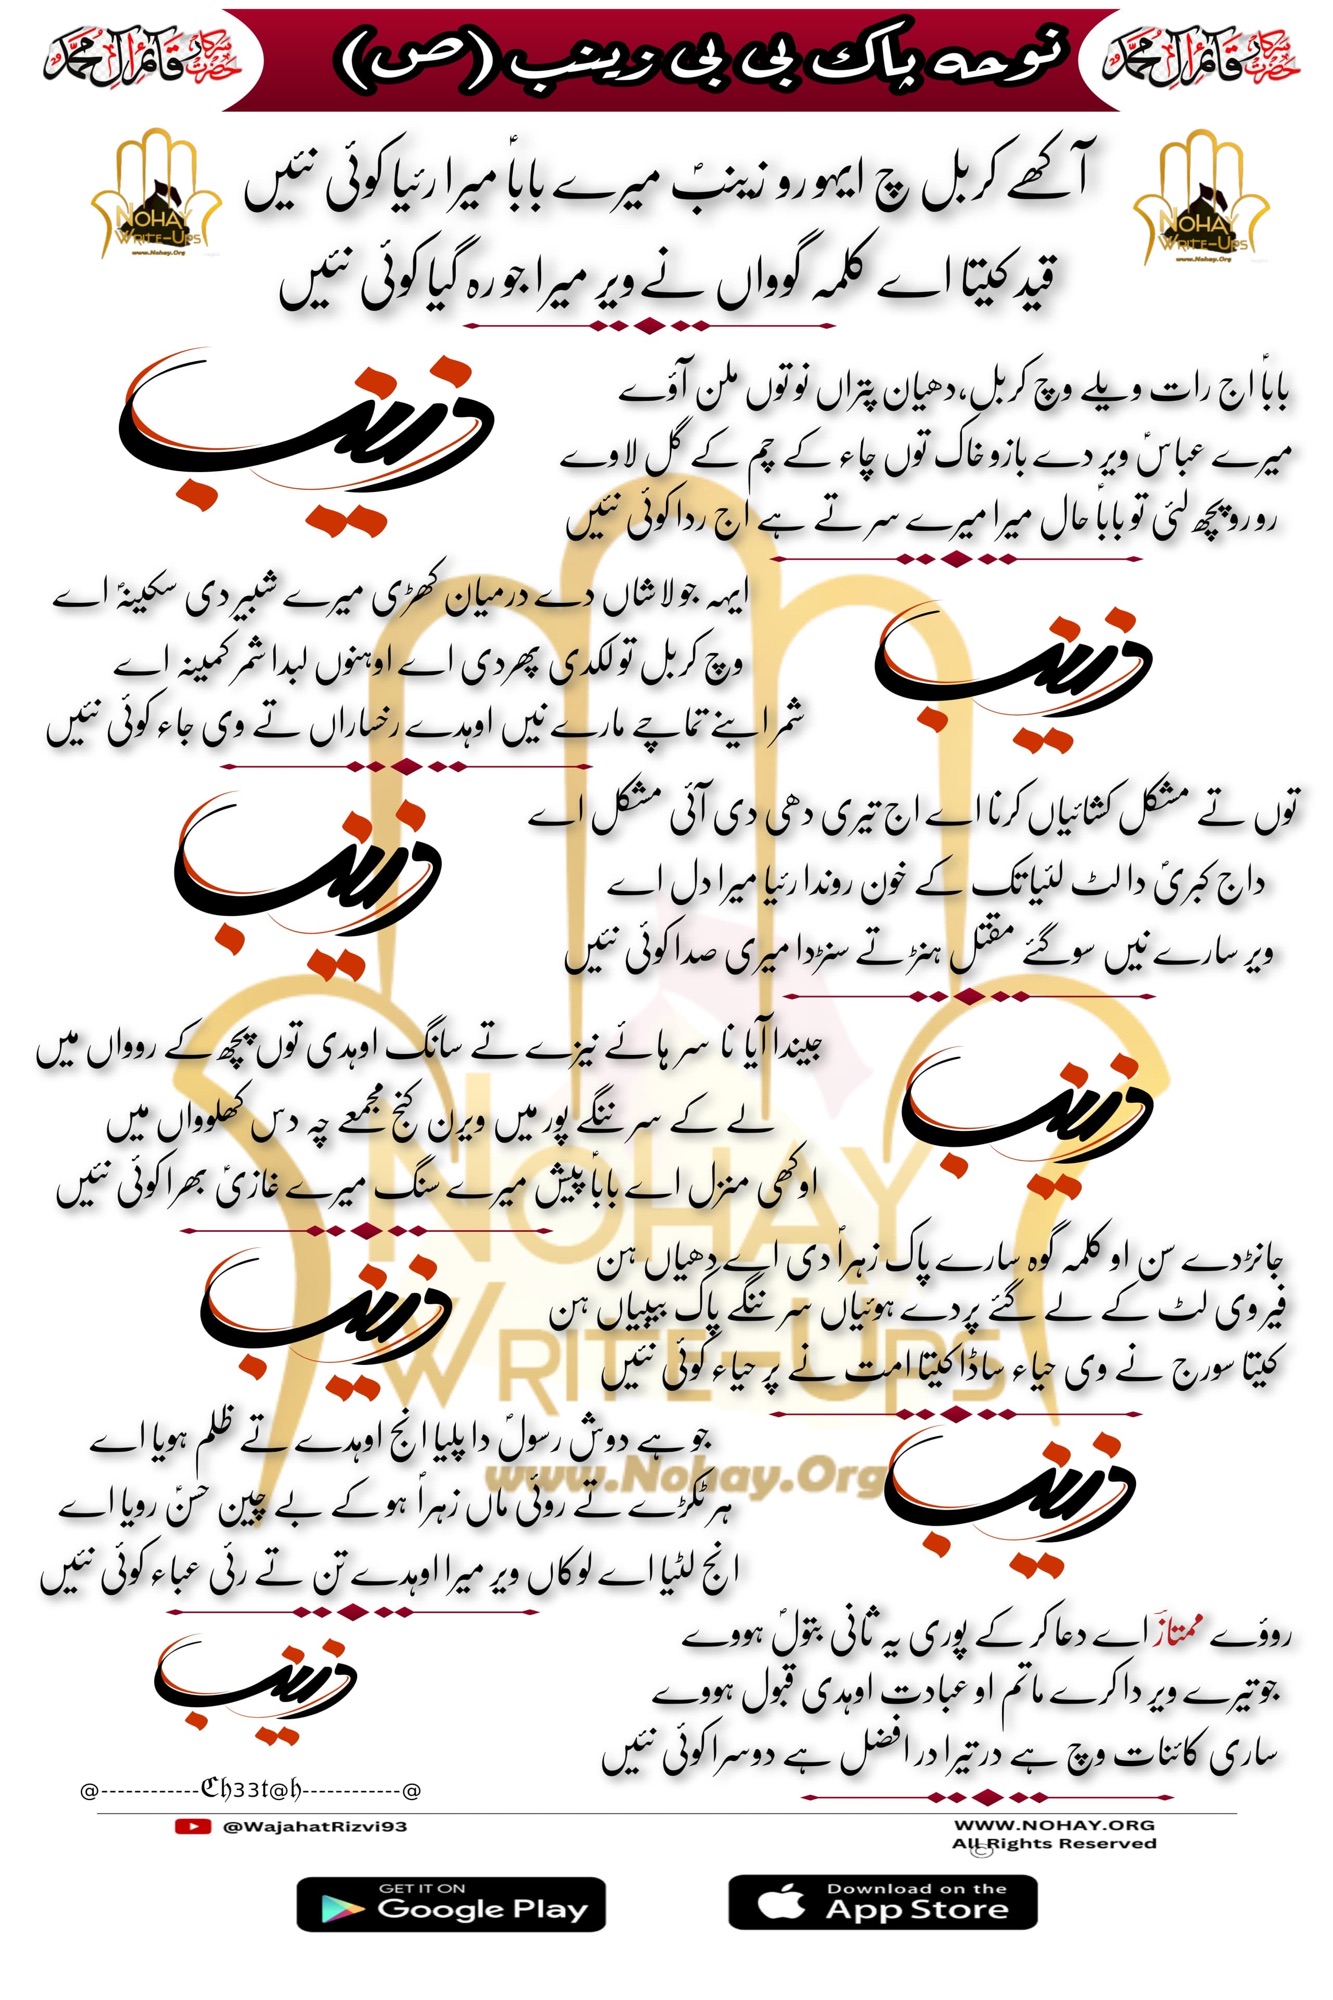 نوحہ پاک بی بی زینب (ص)
سرکار حضرت قائم آل محمدؐ
سرکار حضرت قائم آل محمدؐ
NOHAY
WRITE-UPS
www.Nohay.Org
NOHAY
WRITE-UPS
www.Nohay.Org
آکھے کربل چ ایہو رو زینبؑ میرے باباؑ میرا رئیا کوئی نئیں
قید کیتا اے کلمہ گوواں نے ویر میرا جو رہ گیا کوئی نئیں
باباؑ اج رات ویلے وچ کربل،دھیان پتراں نو توں ملن آؤے
میرے عباسؑ ویر دے بازو خاک توں چاء کے چم کے گل لاوے
رو رو پچھ لئی تو باباؑ حال میرا میرے سر تے ہے اج ردا کوئی نئیں
زینب
ایہہ جو لاشاں دے درمیان کھڑی میرے شبیر دی سکینہؑ اے
وچ کربل تو لکدی پھردی اے اوہنوں لبدا شمر کمینہ اے
شمر اینے تماچے مارے نیں اوہدے رخساراں تے وی جاء کوئی نئیں
زینب
توں تے مشکل کشائیاں کرنا اے اج تیری دھی دی آئی مشکل اے
داج کبریؑ دا لٹ لئیا تک کے خون روندا رئیا میرا دل اے
ویر سارے نیں سو گئے مقتل ہنڑ تے سنڑدا میری صدا کوئی نئیں
زینب
جیندا آیا نا سر ہائے نیزے تے سانگ اوہدی توں پچھ کے روواں میں
لے کے سر ننگے پور میں ویرن کنج مجمعے چہ دس کھلوواں میں
اوکھی منزل اے باباؑ پیش میرے سنگ میرے غازیؑ بھرا کوئی نئیں
زینب
جانڑدے سن او کلمہ گوہ سارے پاک زہراؑ دی اے دھیاں ہن
فیر وی لٹ کے لے گئے پردے ہوئیاں سر ننگے پاک بیبیاں ہن
کیتا سورج نے وی حیاء ساڈا کیتا امت نے پر حیاء کوئی نئیں
زینب
جو ہے دوش رسولؐ دا پلیا انج اوہدے تے ظلم ہویا اے
ہر ٹکڑے تے روئی ماں زہراؑ ہو کے بے چین حسنؑ رویا اے
انج لٹیا اے لوکاں ویر میرا اوہدے تن تے رئی عباء کوئی نئیں
زینب
روؤے ممتازؔ اے دعا کر کے پوری یہ ثانی بتولؑ ہووے
جو تیرے ویر دا کرے ماتم او عبادت اوہدی قبول ہووے
ساری کائنات وچ ہے در تیرا در افضل ہے دوسرا کوئی نئیں
زینب
NOHAY
WRITE-UPS
www.Nohay.Org
@------------Ch33t@h------------@
@WajahatRizvi93
WWW.NOHAY.ORG
All Rights Reserved
©
GET IT ON
Google Play
Download on the
App Store